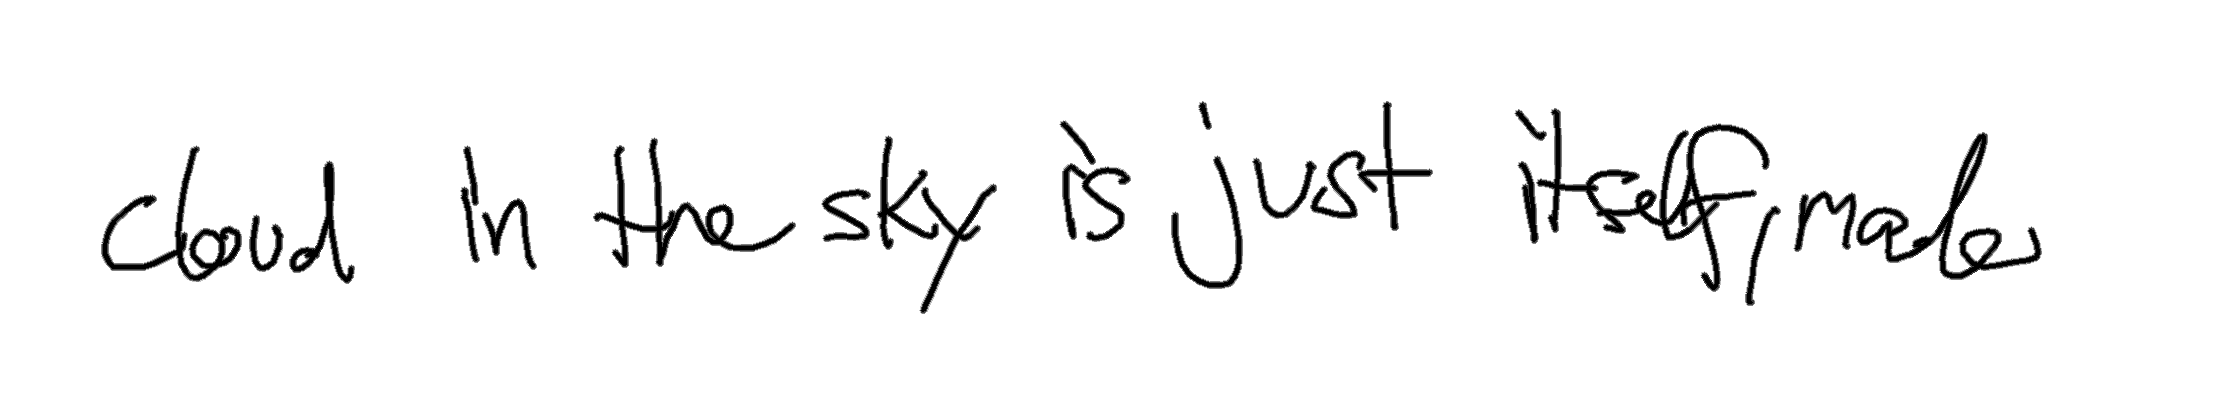 cloud in the sky is just itself, made